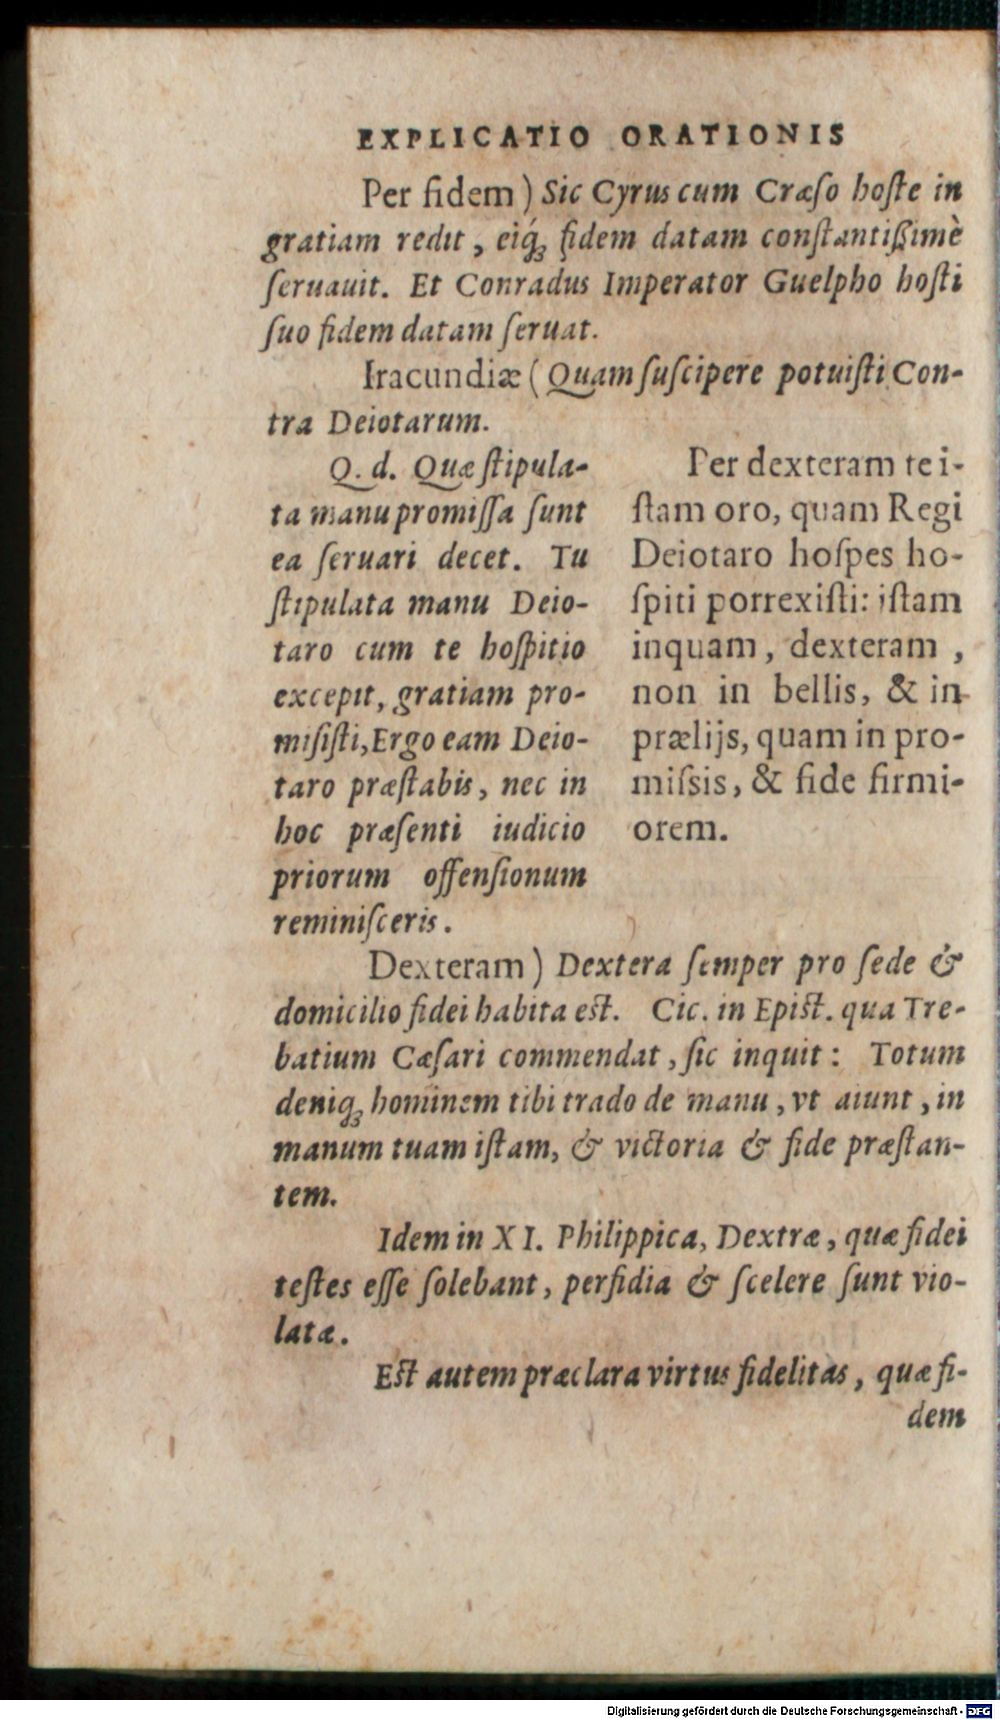 EXPLICATIO ORATIONIS
Per fidem) Sic Cyrus cum Cræſo hoſte in
gratiam redit, eiq́ꝫ fidem datam conſtantißimè
ſeruauit. Et Conradus Imperator Guelpho hoſti
ſuo fidem datam ſeruat.
Iracundiæ (Quam ſuſcipere potuiſti Con-
tra Deiotarum.
Q. d. Quæ ſtipula-
ta manu promiſſa ſunt
ea ſeruari decet. Tu
ſtipulata manu Deio-
taro cum te hoſpitio
excepit, gratiam pro-
miſiſti, Ergo eam Deio-
taro præſtabis, nec in
hoc præſenti iudicio
priorum offenſionum
reminiſceris.
Per dexteram te i-
ſtam oro, quam Regi
Deiotaro hoſpes ho-
ſpiti porrexiſti: iſtam
inquam, dexteram,
non in bellis, & in
prælijs, quam in pro-
miſsis, & fide firmi-
orem.
Dexteram) Dextera ſemper pro ſede &
domicilio fidei habita eſt. Cic. in Epiſt. qua Tre-
batium Cæſari commendat, ſic inquit: Totum
deniqꝫ hominem tibi trado de manu, vt aiunt, in
manum tuam iſtam, & victoria & fide præſtan-
tem.
Idem in XI. Philippica, Dextræ, quæ fidei
teſtes eſſe ſolebant, perfidia & ſcelere ſunt vio-
latæ.
Eſt autem præclara virtus fidelitas, quæ fi-
dem
Digitalisierung gefördert durch die Deutsche Forschungsgemeinschaft - DFG